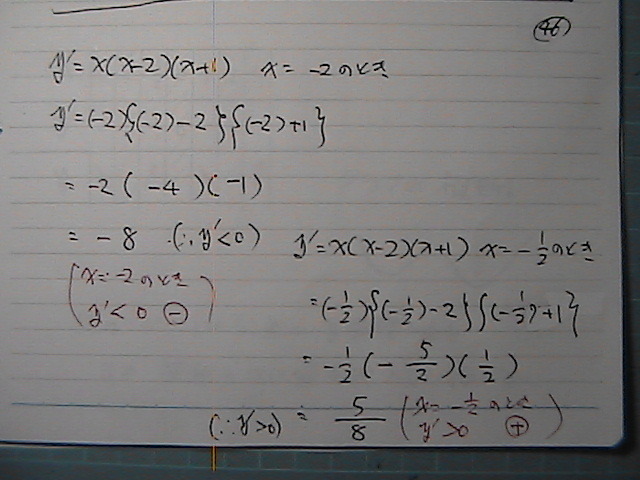 46
y'=x(x-2)(x+1) x=-2のとき
y'=(-2){(-2)-2}{(-2)+1}
=-2(-4)(-1)
=-8 (∴y'<0)
(x=-2のとき
y'<0 ⊖)
y'=x(x-2)(x+1) x=-1/2のとき
=(-1/2){(-1/2)-2}{(-1/2)+1}
=-1/2(-5/2)(1/2)
(∴y'>0) = 5/8 (x=-1/2のとき
y'>0 ⊕)